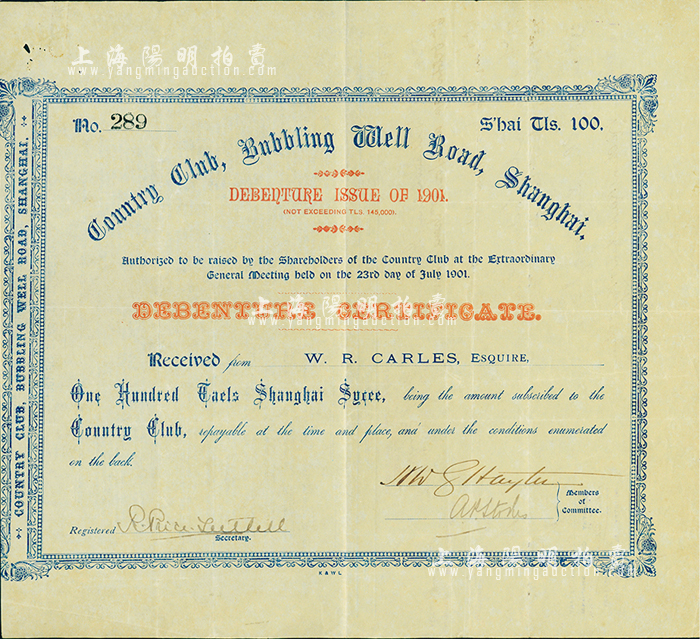 上海陽明拍賣
www.yangmingauction.com
No. 289
S'hai Tls. 100.
Country Club, Bubbling Well Road, Shanghai.
DEBENTURE ISSUE OF 1901.
(NOT EXCEEDING TLS. 145,000).
Authorized to be raised by the Shareholders of the Country Club at the Extraordinary
General Meeting held on the 23rd day of July 1901.
DEBENTURE CERTIFICATE.
上海陽明拍賣
www.yangmingauction.com
Received from W. R. CARLES, ESQUIRE,
One Hundred Taels Shanghai Sycee, being the amount subscribed to the
Country Club, repayable at the time and place, and under the conditions enumerated
on the back.
Members
of
Committee.
Registered
Secretary.
上海陽明拍賣
www.yangmingauction.com
K & W L
COUNTRY CLUB, BUBBLING WELL ROAD, SHANGHAI.